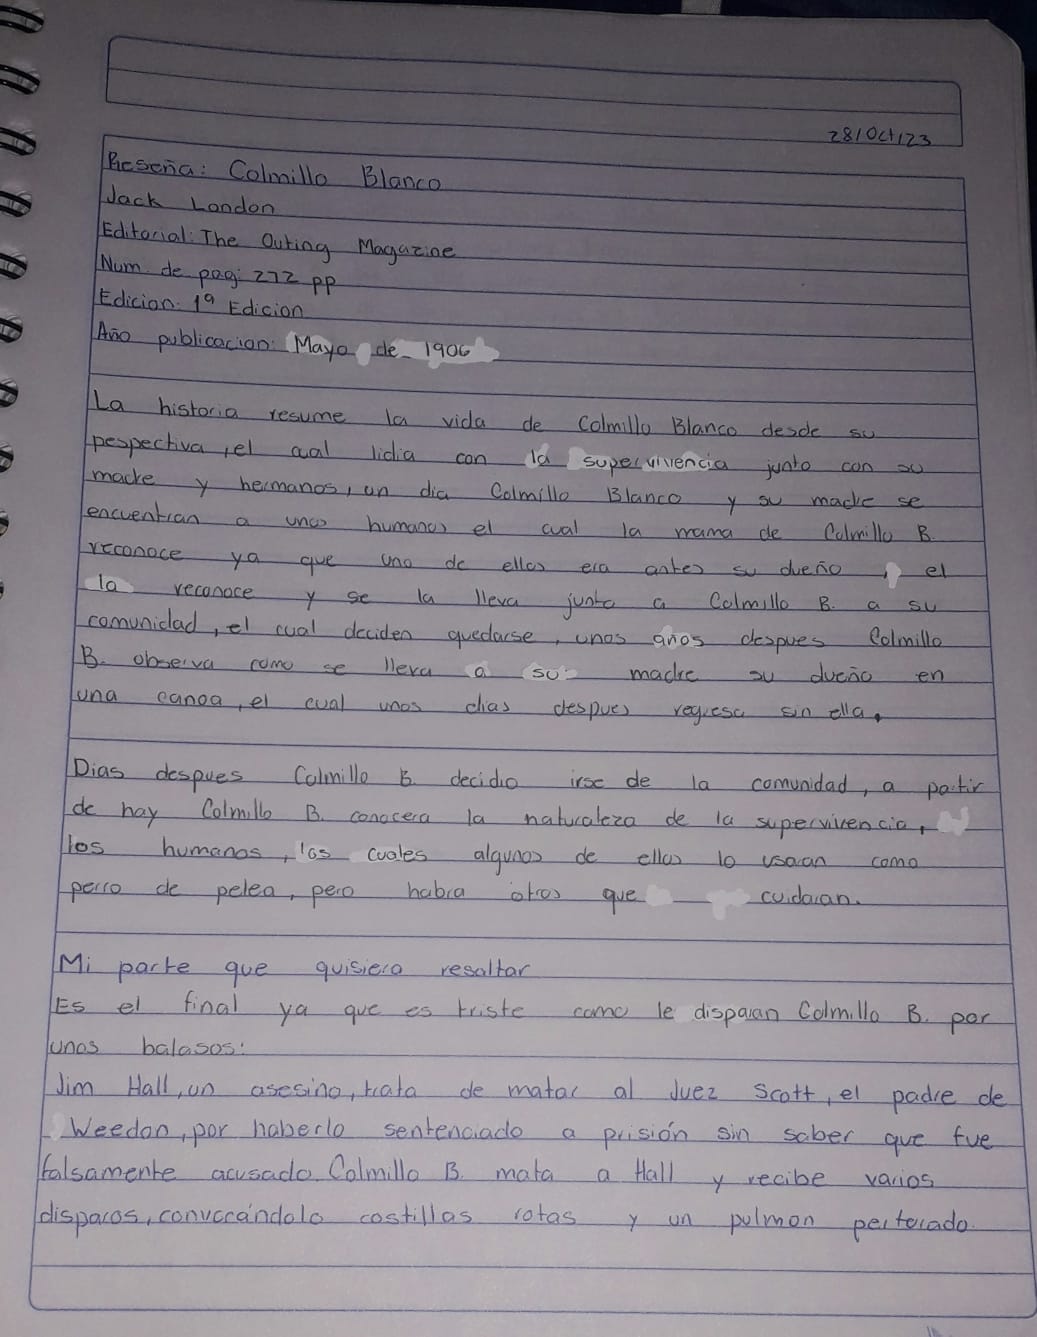 28/Oct/23
Reseña: Colmillo Blanco
Jack London
Editorial: The Outing Magazine
Num. de pag: 272 pp
Edicion: 1ª Edicion
Año publicacion: Mayo de 1906
La historia resume la vida de Colmillo Blanco desde su
pespectiva, el cual lidia con la supervivencia junto con su
madre y hermanos, un dia Colmillo Blanco y su madre se
encuentran a unos humanos el cual la mama de Colmillo B.
reconoce ya que uno de ellos era antes su dueño, el
la reconoce y se la lleva junto a Colmillo B. a su
comunidad, el cual deciden quedarse, unos años despues Colmillo
B. observa como se lleva a su madre su dueño en
una canoa, el cual unos dias despues regresa sin ella.
Dias despues Colmillo B. decidio irse de la comunidad, a partir
de hay Colmillo B. conocera la naturaleza de la supervivencia,
los humanos, los cuales algunos de ellos lo usaran como
perro de pelea, pero habra otros que cuidaran.
Mi parte que quisiera resaltar
Es el final ya que es triste como le disparan Colmillo B. por
unos balasos:
Jim Hall, un asesino, trata de matar al Juez Scott, el padre de
Weedon, por haberlo sentenciado a prisión sin saber que fue
falsamente acusado. Colmillo B. mata a Hall y recibe varios
disparos, convocándolo costillas rotas y un pulmon perforado.